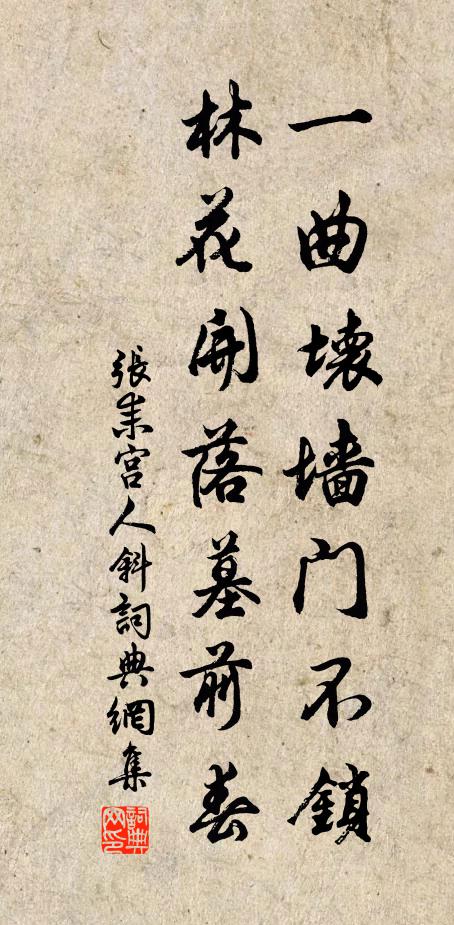 一曲壊墻门不鎖
林花開落墓前春
張耒宫人斜詞典網集
詞典网印